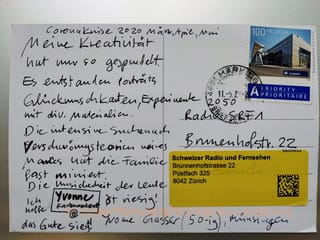 Coronakrise 2020 März, April, Mai
Meine Kreativität
hat nur so gesprudelt
Es entstanden Porträts
Glückwunschkarten, Experimente
mit div. Materialien.
Die intensive Suche nach
Verschwörungstheorien meines
Mannes hat die Familie
fast ruiniert.
Die Unsicherheit der Leute
ist riesig!
Ich
hoffe
das Gute siegt!
Yvonne
@
Yvonne Gasser (50-ig), Münsingen
100 HELVETIA
A PRIORITY
PRIORITAIRE
2050
Radio SRF 1
Brunnenhofstr. 22
Schweizer Radio und Fernsehen
Brunnenhofstrasse 22
Postfach 325
8042 Zürich